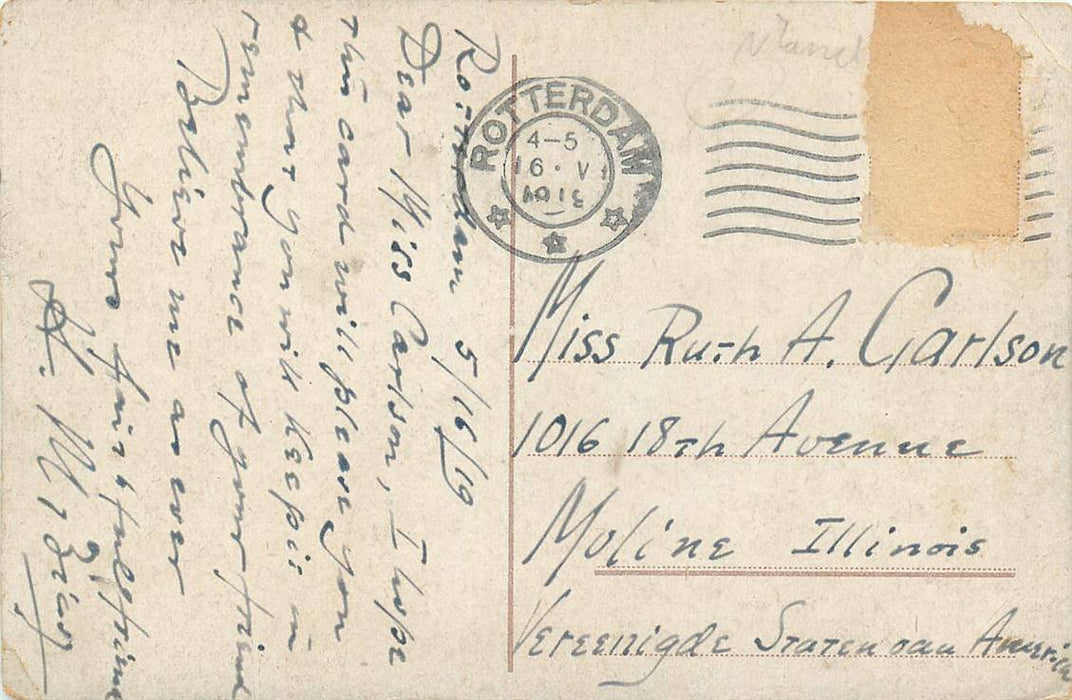 Rotterdam 5/16/19
Dear Miss Carlson, I hope
this card will please you
& that you will keep it in
remembrance of your friend
Believe me as ever
Yours faithful friend
ROTTERDAM
4-5
16 · V
Miss Ruth A. Carlson
1016 18th Avenue
Moline Illinois
Vereenigde Staten van America